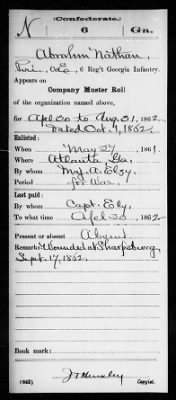 Confederate.
N 6 Ga.
Abraham Nathan
Pri, Co E, 6 Reg't Georgia Infantry.
Appears on
Company Muster Roll
of the organization named above,
for Apl 20 to Aug. 31, 1862.
Dated Oct. 9, 1862.
Enlisted:
When May 27, 1861.
Where Atlanta Ga.
By whom Maj. A. Elzy.
Period for War.
Last paid:
By whom Capt. Ely.
To what time Apl 20, 1862.
Present or absent Absent
Remarks: Wounded at Sharpsburg,
Sept. 17, 1862.
Book mark:
(642) Copyist.